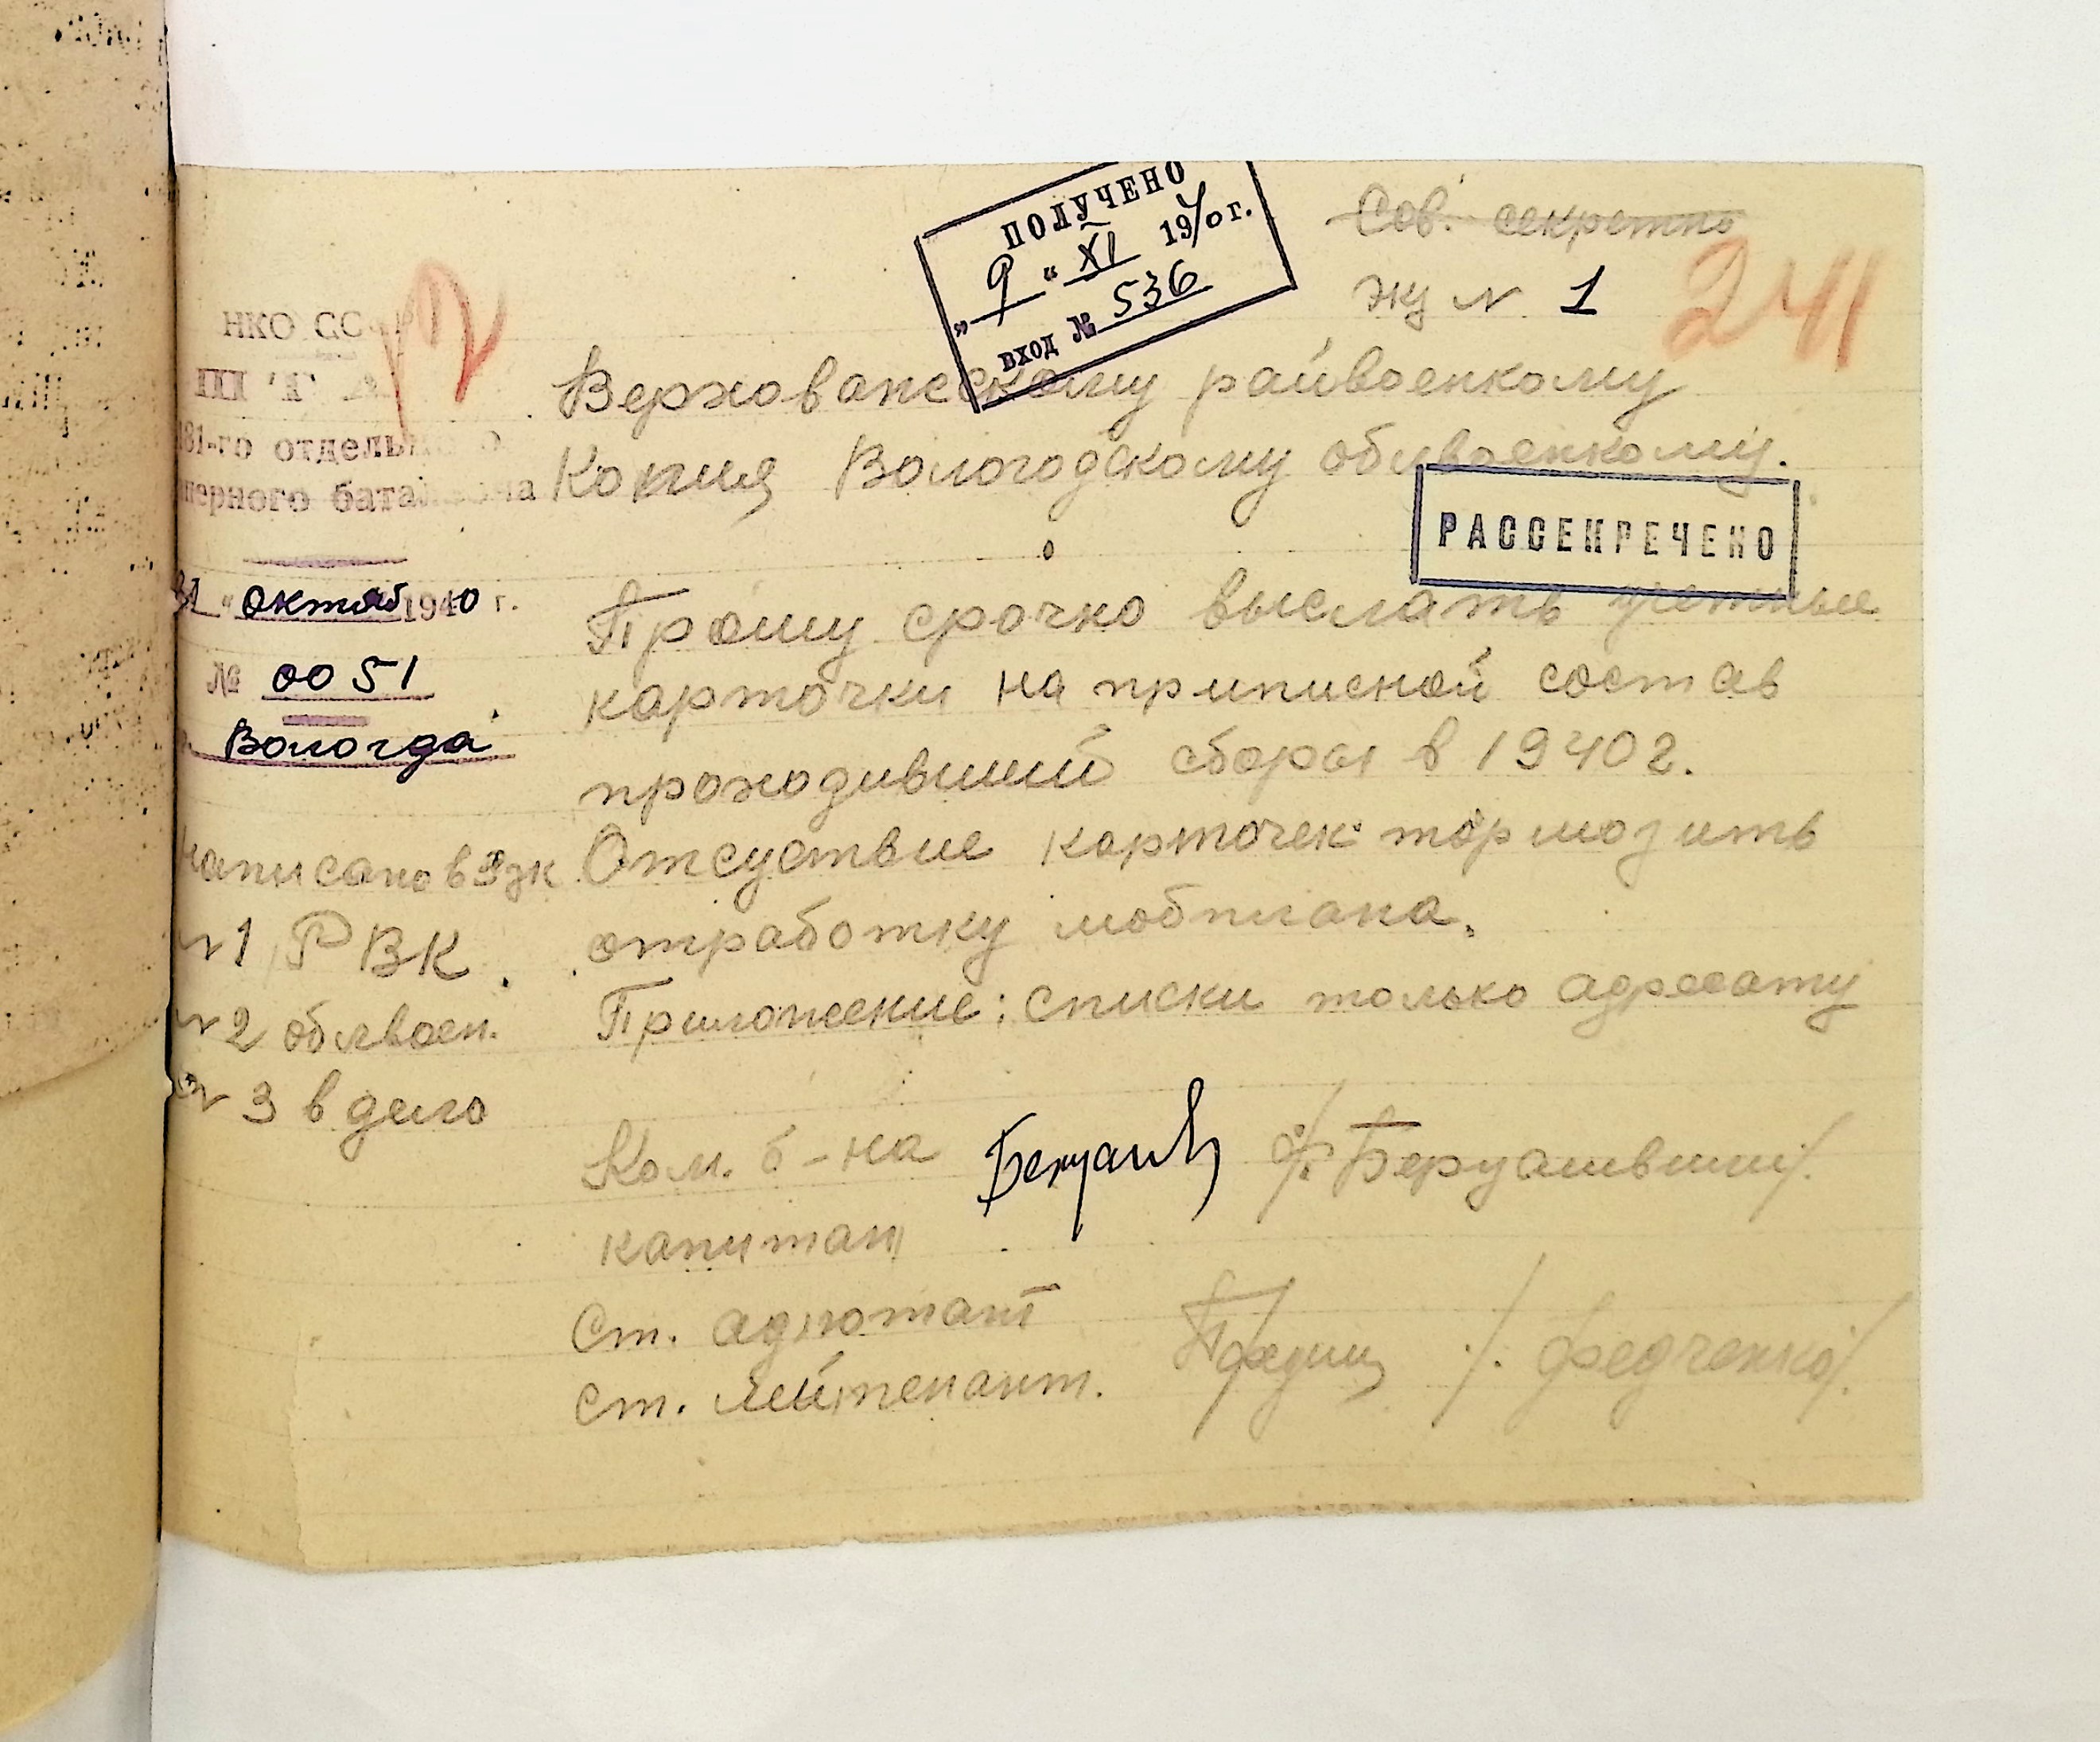 ПОЛУЧЕНО
„9“ XI 1940 г.
вход № 536
Сов. секретно
экз N 1
241
НКО СС
ШТАБ
181-го отдельного
саперного батальона
31 „октяб 1940 г.
№ 0051
г. Вологда
Верховажскому райвоенкому
Копия Вологодскому облвоенкому.
РАССЕКРЕЧЕНО
Прошу срочно выслать учетные
карточки на приписной состав
проходивший сборы в 1940 г.
Отсуствие карточек тормозить
отработку мобплана.
Приложение: списки только адресату
написано в 3 экз
N 1 РВК.
N 2 облвоен.
N 3 в дело
Ком. б-на
капитан
Ст. адютант
ст. лейтенант.
/Федченко/.